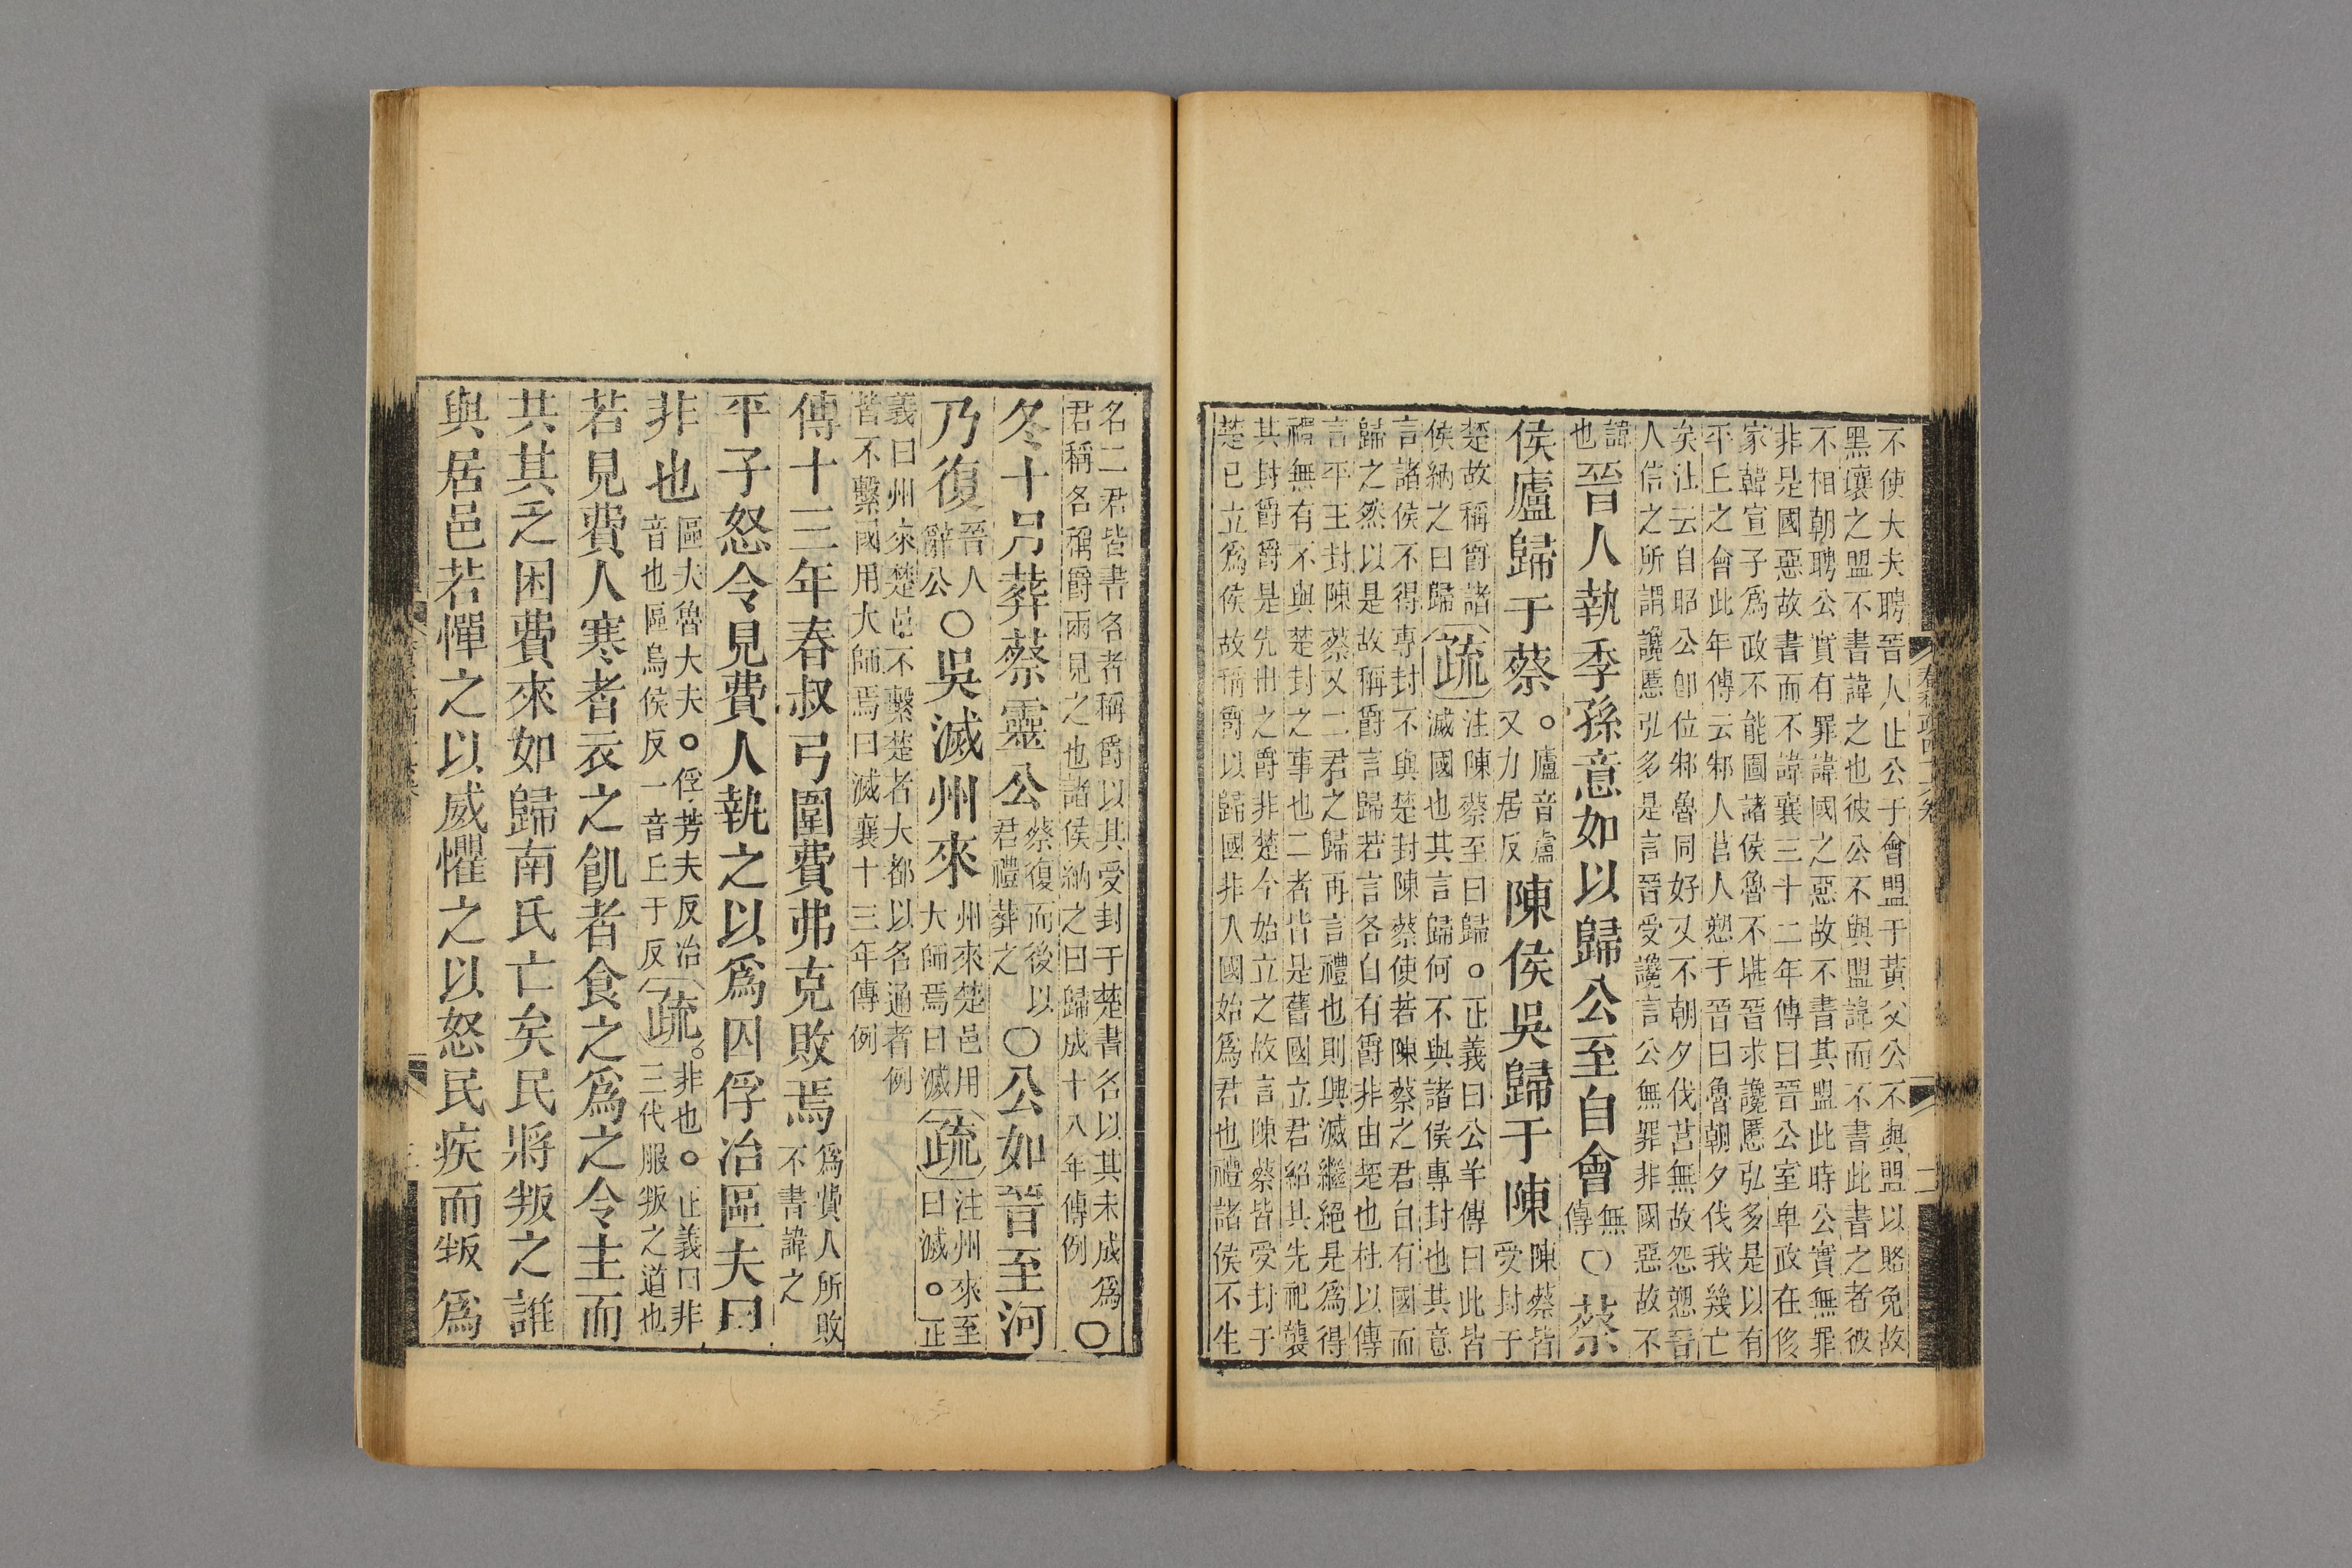 不使大夫聘晉人止公于會盟于黃父公不與盟以賂免故
黑壤之盟不書諱之也彼公不與盟諱而不書此書之者彼
不相朝聘公實有罪諱國之惡故不書其盟此時公實無罪
非是國惡故書而不諱襄三十二年傳曰晉公室卑政在侈
家韓宣子為政不能圖諸侯魯不堪晉求讒慝弘多是以有
平丘之會此年傳云邾人莒人愬于晉曰魯朝夕伐我幾亡
矣注云自昭公卽位邾魯同好又不朝夕伐莒無故怨愬晉
人信之所謂讒慝弘多是言晉受讒言公無罪非國惡故不
諱
也晉人執季孫意如以歸公至自會無
傳〇蔡
侯廬歸于蔡。廬音盧
又力居反陳侯吳歸于陳陳蔡皆
受封于
楚故稱爵諸
侯納之曰歸疏注陳蔡至曰歸。正義曰公羊傳曰此皆
滅國也其言歸何不與諸侯專封也其意
言諸侯不得專封不與楚封陳蔡使若陳蔡之君自有國而
歸之然以是故稱爵言歸若言各自有爵非由楚也杜以傳
言平王封陳蔡又二君之歸再言禮也則興滅繼絕是為得
禮無有不與楚封之事也二者皆是舊國立君紹其先祀襲
其封爵爵是先世之爵非楚今始立之故言陳蔡皆受封于
楚已立為侯故稱爵以歸國非入國始爲君也禮諸侯不生
名二君皆書名者稱爵以其受封于楚書名以其未成爲
君稱名稱爵兩見之也諸侯納之曰歸成十八年傳例〇
冬十月葬蔡靈公蔡復而後以
君禮葬之〇公如晉至河
乃復晉人
辭公〇吳滅州來州來楚邑用
大師焉曰滅疏注州來至
曰滅。正
義曰州來楚邑不繫楚者大都以名通者例
皆不繫國用大師焉曰滅襄十三年傳例
傳十三年春叔弓圍費弗克敗焉爲費人所敗
不書諱之
平子怒令見費人執之以爲囚俘冶區夫曰
非也區夫魯大夫。俘芳夫反冶
音也區烏侯反一音丘于反疏非也。正義曰非
三代服叛之道也
若見費人寒者衣之飢者食之爲之令主而
共其乏困費來如歸南氏亡矣民將叛之誰
與居邑若憚之以威懼之以怒民疾而叛爲